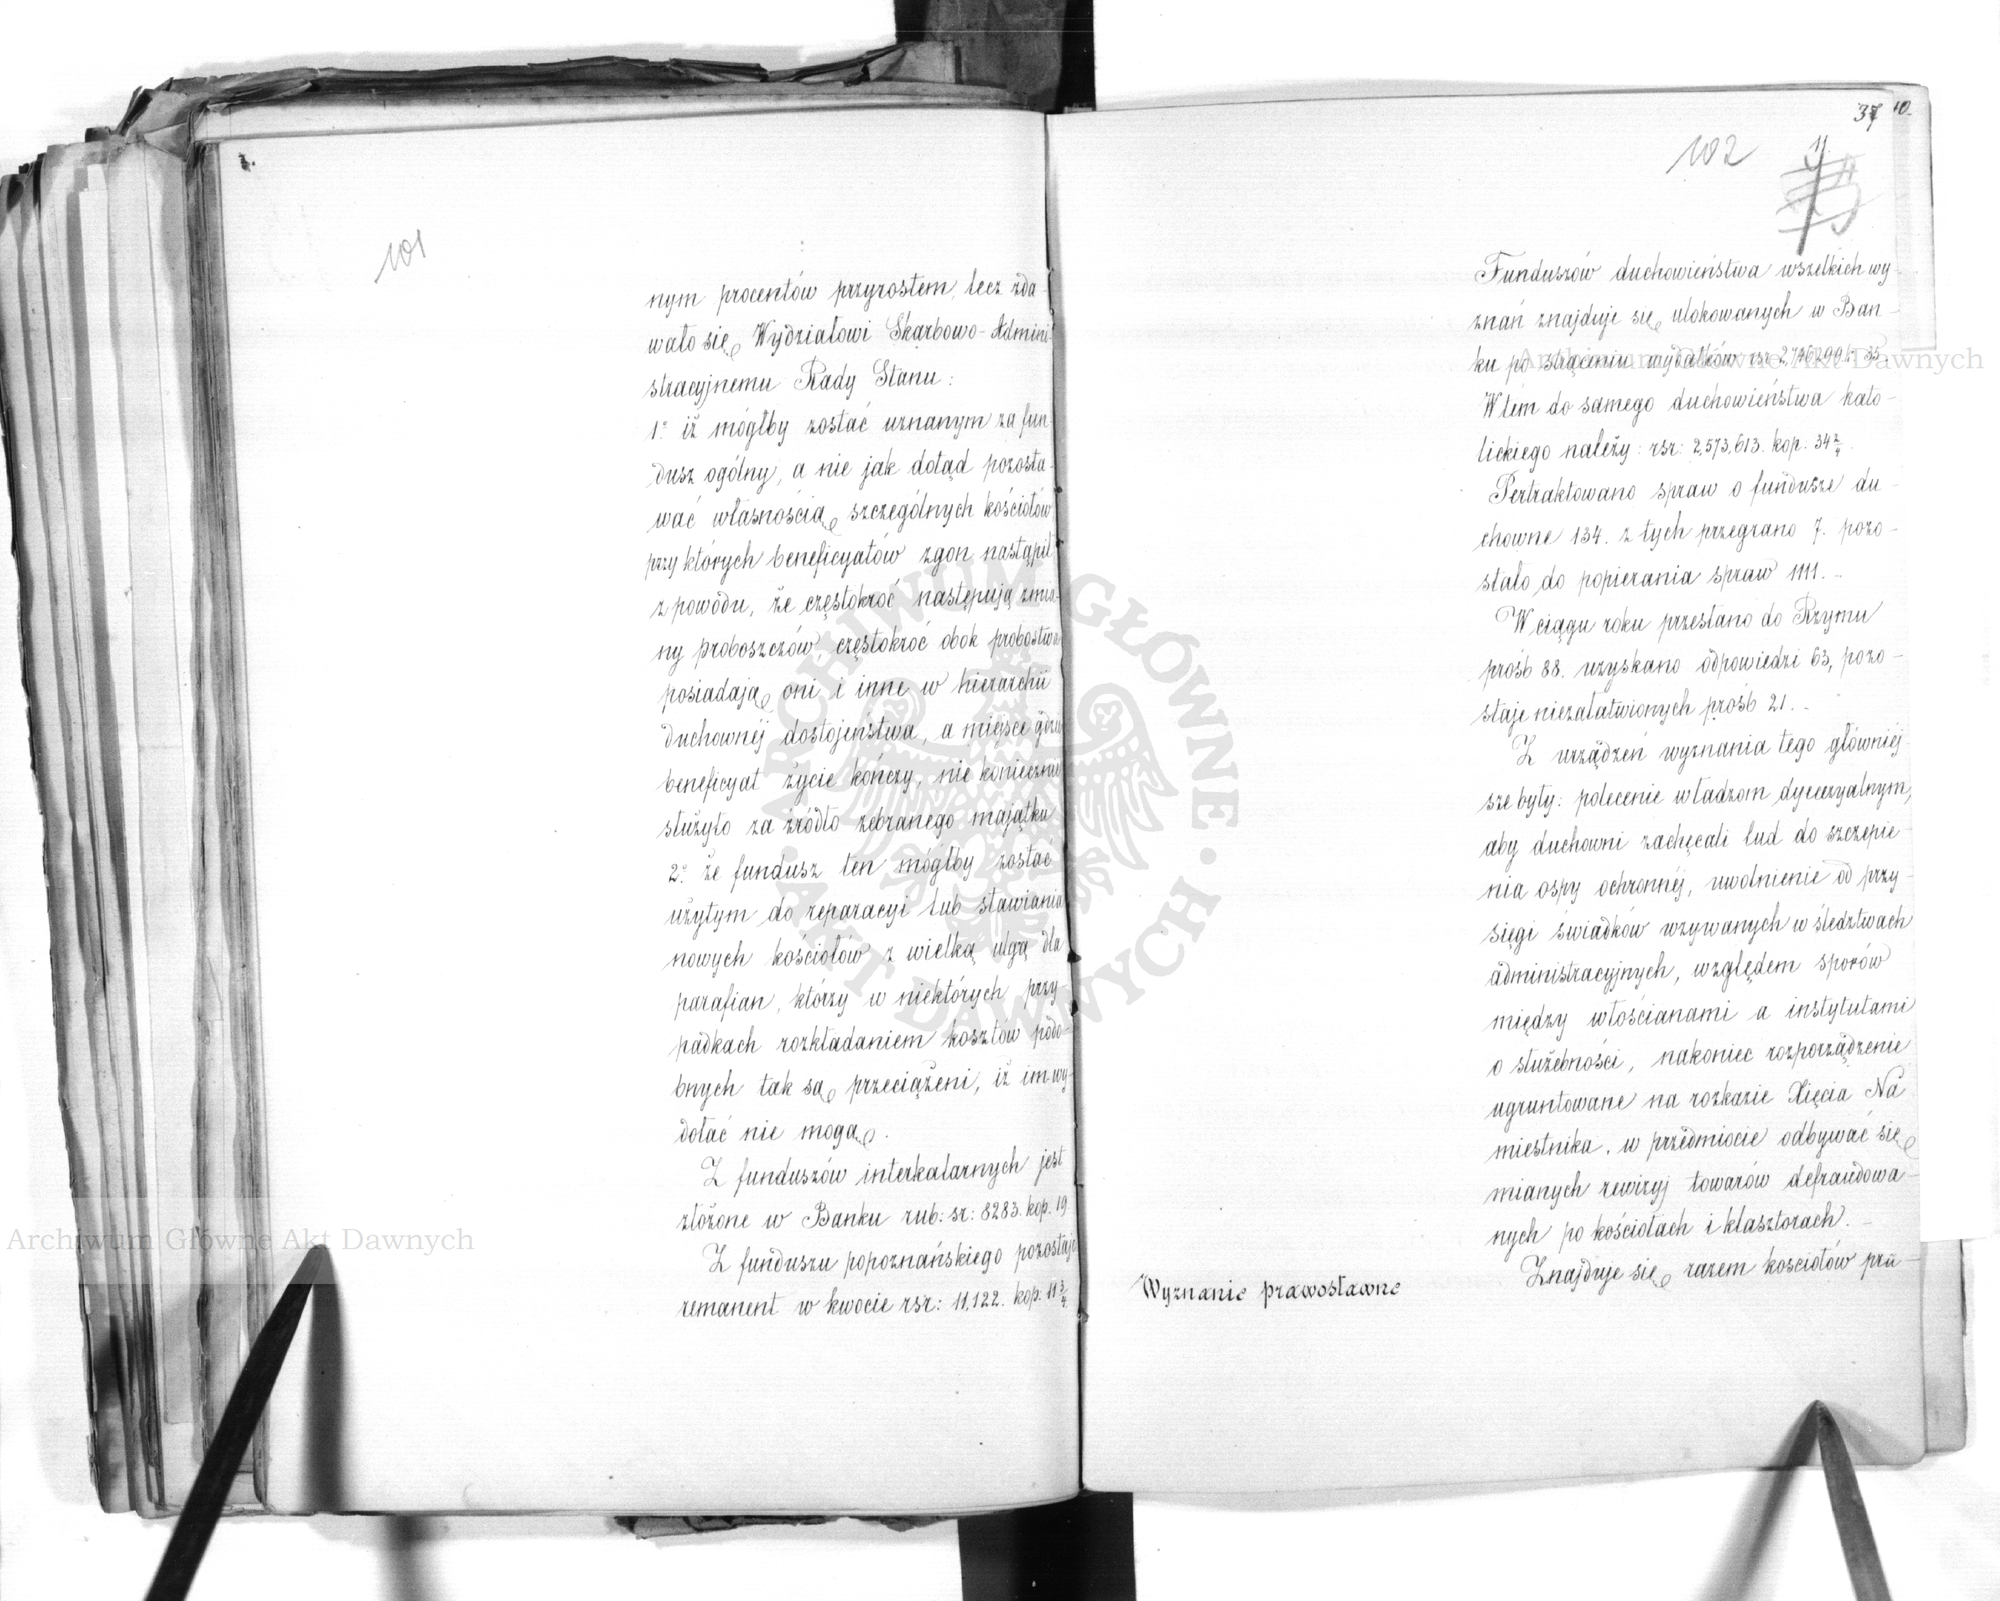 101
nym procentów przyrostem, lecz zda-
wało się Wydziałowi Skarbowo-Admini-
stracyjnemu Rady Stanu:
1º iż mógłby zostać uznanym za fun-
dusz ogólny, a nie jak dotąd pozosta-
wać własnością szczególnych kościołów
przy których beneficyatów zgon nastąpił
z powodu, że częstokroć następują zmia-
ny proboszczów, częstokroć obok probostwa
posiadają oni i inne w hierarchii
duchownéj dostojeństwa, a miejsce gdzie
beneficyat życie kończy, nie koniecznie
służyło za źródło zebranego majątku
2º że fundusz ten mógłby zostać
użytym do reparacyi lub stawiania
nowych kościołów z wielką ulgą dla
parafian, którzy w niektórych przy-
padkach rozkładaniem kosztów podo-
bnych tak są przeciążeni, iż im wy-
dołać nie mogą.
Z funduszów interkalarnych jest
złożone w Banku rub: sr: 8283. kop. 19
Z funduszu popoznańskiego pozostaje
remanent w kwocie rsr: 11,122. kop: 11 3/4.
37 40.
102
11.
Funduszów duchowieństwa wszelkich wy-
znań znajduje się ulokowanych w Ban-
ku po strąceniu wydatków rsr 2,746299 k. 35.
W tém do samego duchowieństwa kato-
lickiego należy: rsr: 2,573,613. kop: 34 2/4.
Pertraktowano spraw o fundusze du-
chowne 134. z tych przegrano 7. pozo-
stało do popierania spraw 1111.
W ciągu roku przesłano do Rzymu
próśb 88. uzyskano odpowiedzi 63, pozo-
staje niezałatwionych próśb 21.
Z urządzeń wyznania tego główniej-
sze były: polecenie władzom dyecezyalnym,
aby duchowni zachęcali lud do szczepie-
nia ospy ochronnéj, uwolnienie od przy-
sięgi świadków wzywanych w śledztwach
administracyjnych, względem sporów
między włościanami a instytutami
o służebności, nakoniec rozporządzenie
ugruntowane na rozkazie Xięcia Na
miestnika, w przedmiocie odbywać się
mianych rewizyj towarów defraudowa-
nych po kościołach i klasztorach.
Wyznanie prawosławne
Znajduje się razem kościołów pra-
Archiwum Główne Akt Dawnych
Archiwum Główne Akt Dawnych
ARCHIWUM GŁÓWNE · AKT DAWNYCH ·